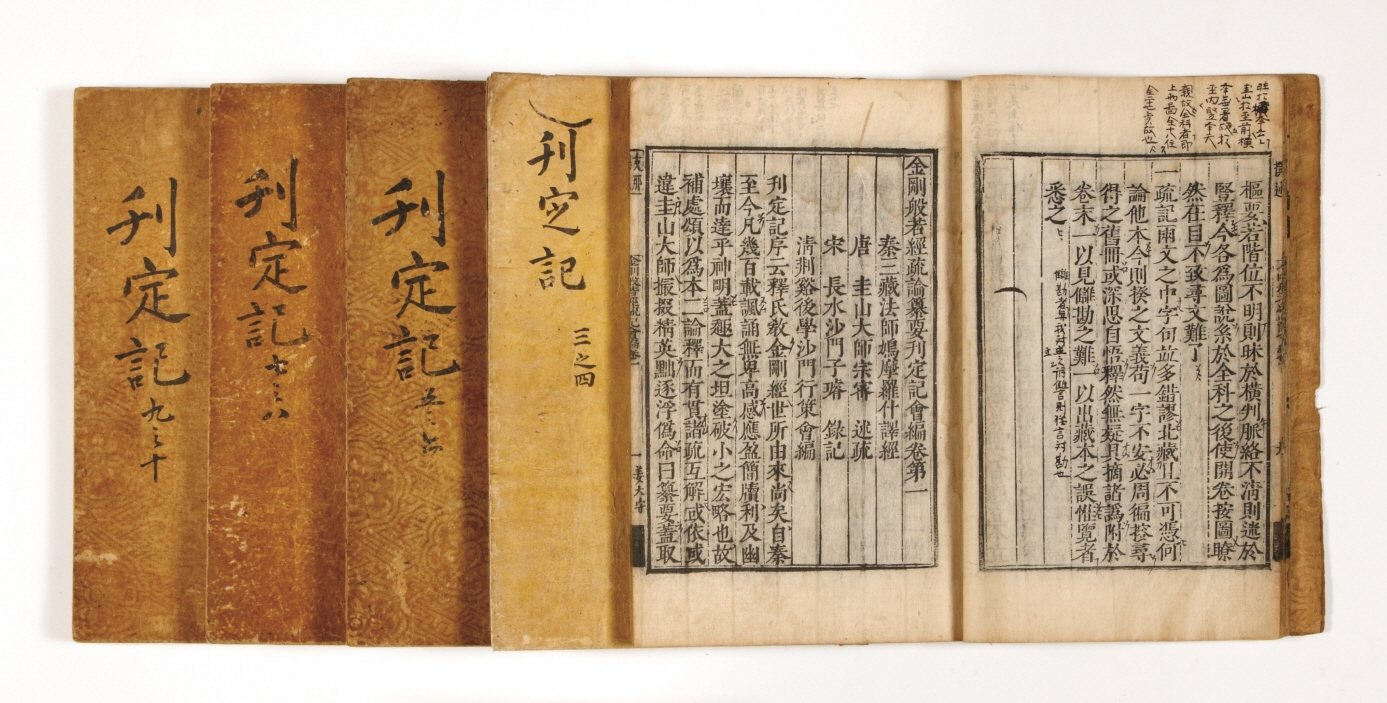 樞要若階位不明則昧於橫判脈絡不清則迷於
竪釋今各爲圖說系於全科之後使開卷按圖瞭
然在目不致尋文難了
一疏記兩文之中字句並多錯謬北藏且不可憑何
論他本今則揆之文義苟一字不安必周徧搭尋
得之舊冊或深思自悟釋然無疑具摘諸譌附於
卷末一以見讎勘之難一以出藏本之誤惟覽者
悉之
金剛般若經疏論纂要刊定記會編卷第一
秦三藏法師鳩摩羅什譯經
唐 圭山大師宗密 述疏
宋 長水沙門子璿 錄記
淸荆谿後學沙門行策會編
刊定記序云釋氏敎金剛經世所由來尚矣自秦
至今凡幾百載諷誦無卑高感應盈簡牘利及幽
壤而達乎神明蓋趣大之坦塗破小之宏略也故
補處頌以爲本二論釋而有貫諸疏互解或依或
違圭山大師掇英黜逐浮僞命曰纂要蓋取
姜大容
刊定記
三之四
刊定記 五之六
刊定記 七之八
刊定記 九之十